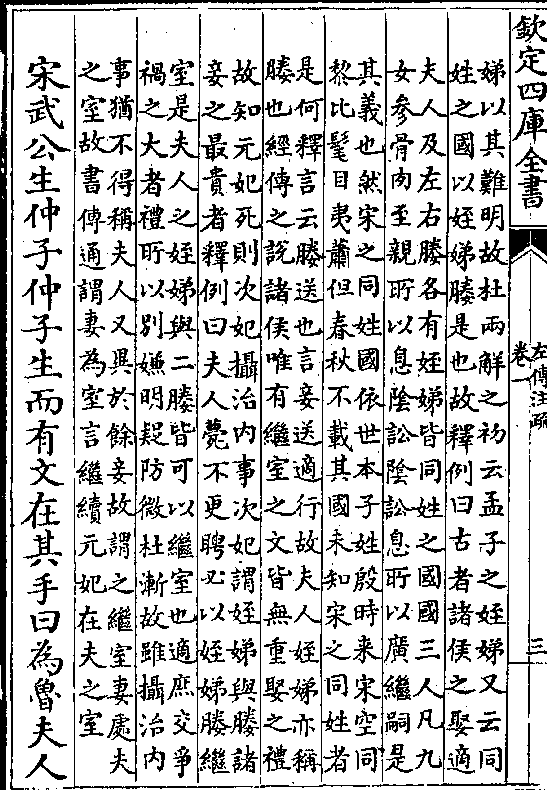 欽定四庫全書
左傳注疏
卷一
三
娣以其難明故杜兩解之初云孟子之姪娣又云同
姓之國以姪娣媵是也故釋例曰古者諸侯之娶適
夫人及左右媵各有姪娣皆同姓之國國三人凡九
女參骨肉至親所以息陰訟陰訟息所以廣繼嗣是
其義也然宋之同姓國依世本子姓殷時来宋空同
黎比髦目夷蕭但春秋不載其國未知宋之同姓者
是何釋言云媵送也言妾送適行故夫人姪娣亦稱
媵也經傳之說諸侯唯有繼室之文皆無重娶之禮
故知元妃死則次妃攝治内事次妃謂姪娣與媵諸
妾之最貴者釋例曰夫人薨不更聘必以姪娣媵繼
室是夫人之姪娣與二媵皆可以繼室也適庶交爭
禍之大者禮所以别嫌明疑防微杜漸故雖攝治内
事猶不得稱夫人又異於餘妾故謂之繼室妻處夫
之室故書傳通謂妻為室言繼續元妃在夫之室
宋武公生仲子仲子生而有文在其手曰為魯夫人